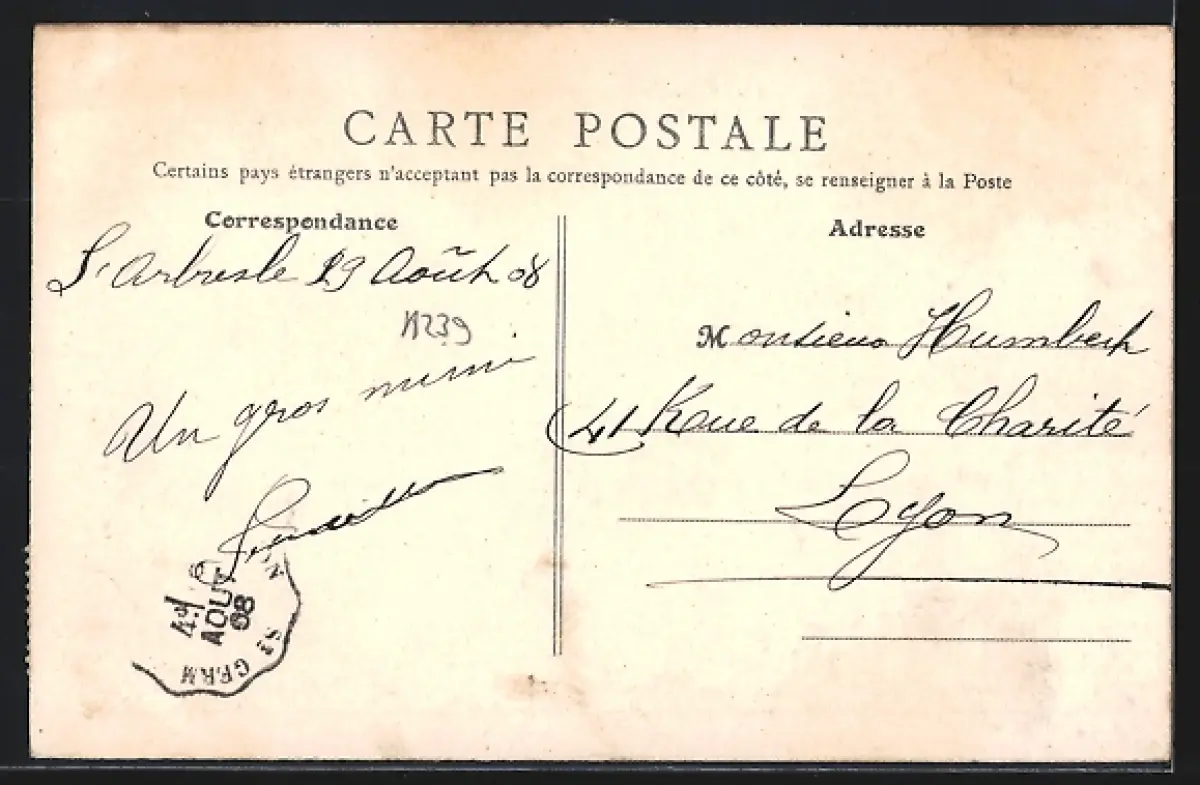 CARTE POSTALE
Certains pays étrangers n'acceptant pas la correspondance de ce côté, se renseigner à la Poste
Correspondance
L'Arbresle 19 Août 08
A239
Un gros mimi
Adresse
Monsieur Humbert
41 Rue de la Charité
Lyon
AOUT
08
ST GERM